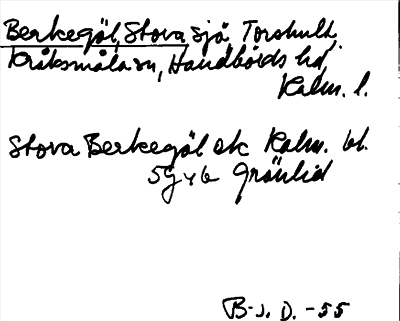 Berkegöl, Stora sjö Torshult,
Kråksmåla sn, Handbörds hd,
Kalm. l.
Stora Berkegöl ek Kalm. bl.
5G y b Grönlid
B-J. D. -55